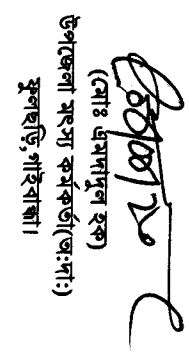 (মোঃ এমদাদুল হক)
উপজেলা মৎস্য কর্মকর্তা(অ:দা:)
ফুলছড়ি, গাইবান্ধা।